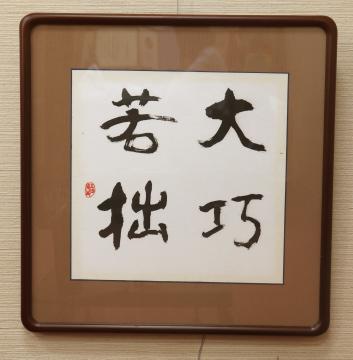 大巧
若拙